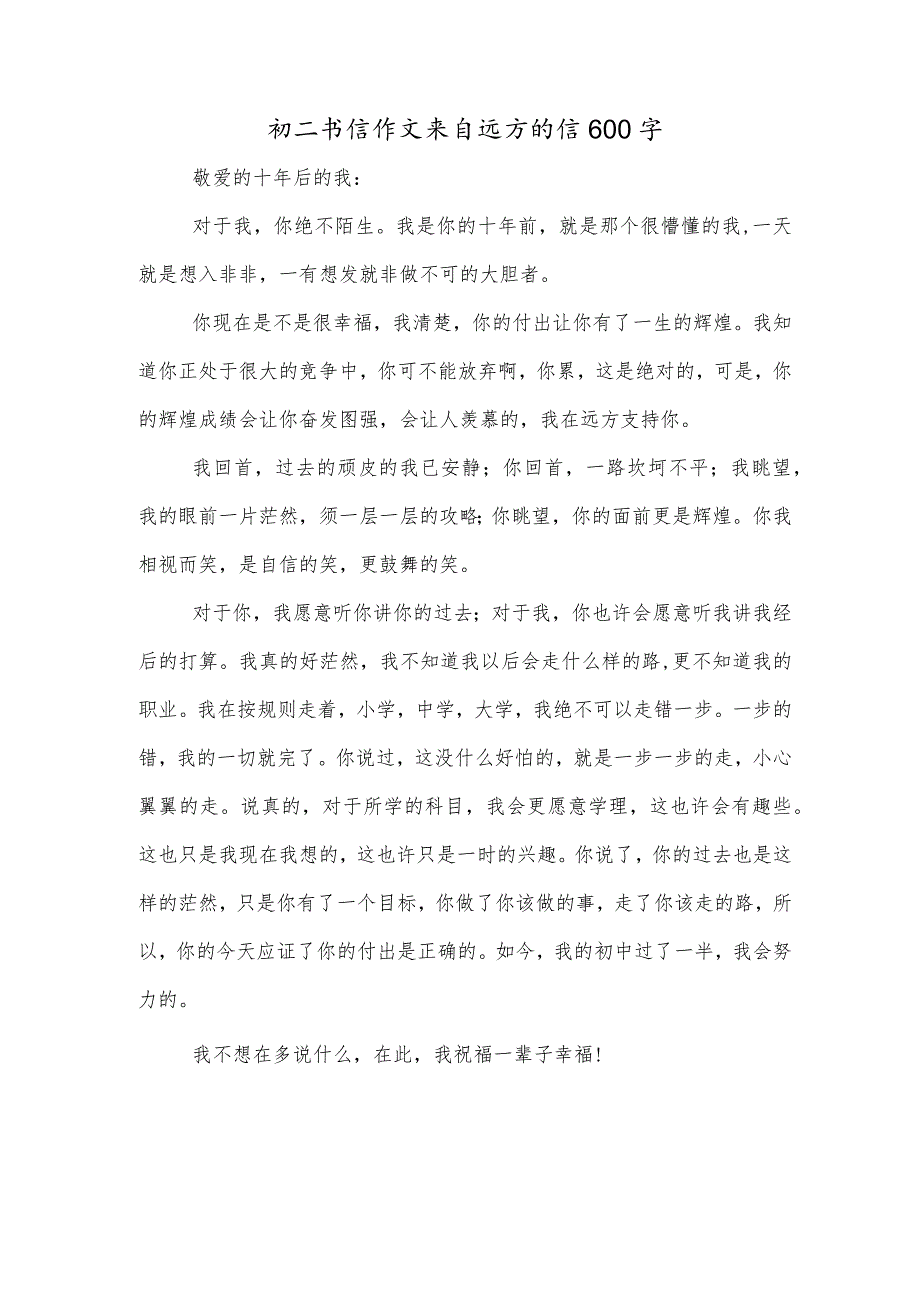 初二书信作文来自远方的信600字
敬爱的十年后的我：
对于我，你绝不陌生。我是你的十年前，就是那个很懵懂的我,一天
就是想入非非，一有想发就非做不可的大胆者。
你现在是不是很幸福，我清楚，你的付出让你有了一生的辉煌。我知
道你正处于很大的竞争中，你可不能放弃啊，你累，这是绝对的，可是，你
的辉煌成绩会让你奋发图强，会让人羡慕的，我在远方支持你。
我回首，过去的顽皮的我已安静；你回首，一路坎坷不平；我眺望，
我的眼前一片茫然，须一层一层的攻略；你眺望，你的面前更是辉煌。你我
相视而笑，是自信的笑，更鼓舞的笑。
对于你，我愿意听你讲你的过去；对于我，你也许会愿意听我讲我经
后的打算。我真的好茫然，我不知道我以后会走什么样的路,更不知道我的
职业。我在按规则走着，小学，中学，大学，我绝不可以走错一步。一步的
错，我的一切就完了。你说过，这没什么好怕的，就是一步一步的走，小心
翼翼的走。说真的，对于所学的科目，我会更愿意学理，这也许会有趣些。
这也只是我现在我想的，这也许只是一时的兴趣。你说了，你的过去也是这
样的茫然，只是你有了一个目标，你做了你该做的事，走了你该走的路，所
以，你的今天应证了你的付出是正确的。如今，我的初中过了一半，我会努
力的。
我不想在多说什么，在此，我祝福一辈子幸福!